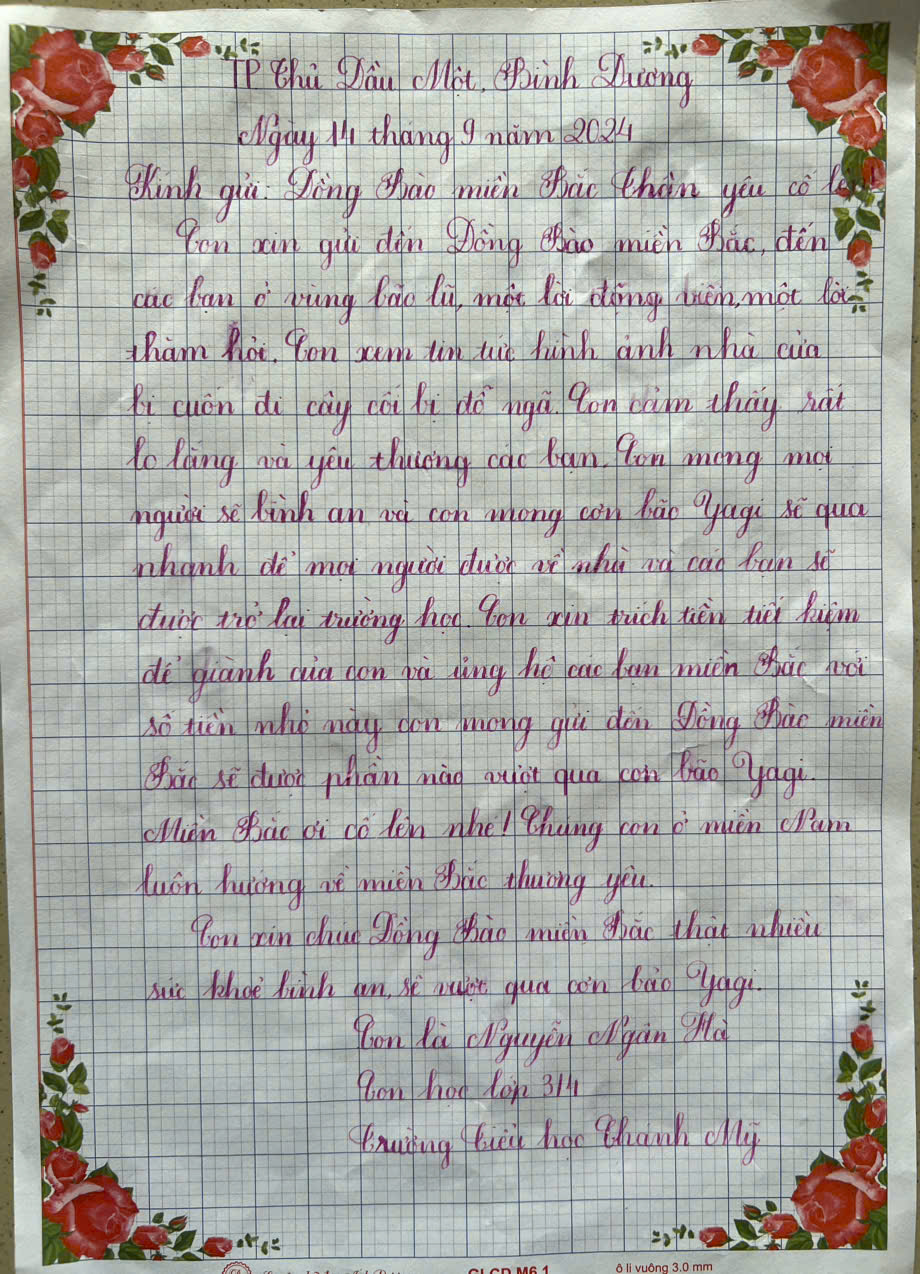 TP Thủ Dầu Một, Bình Dương
Ngày 14 tháng 9 năm 2024
Kính gửi: Đồng Bào miền Bắc thân yêu cố
Con xin gửi đến Đồng Bào miền Bắc, đến
các bạn ở vùng bão lũ, một lời động viên, một lời
thăm hỏi. Con xem tin tức hình ảnh nhà cửa
bị cuốn đi cây cối bị đổ ngã. Con cảm thấy rất
lo lắng và yêu thương các bạn. Con mong mọi
người sẽ bình an và con mong cơn bão Yagi sẽ qua
nhanh để mọi người được về nhà và các bạn sẽ
được trở lại trường học. Con xin trích tiền tiết kiệm
để giành của con và ủng hộ các bạn miền Bắc với
số tiền nhỏ này con mong gửi đến Đồng Bào miền
Bắc sẽ được phần nào vượt qua cơn bão Yagi.
Miền Bắc ơi cố lên nhé! Chúng con ở miền Nam
luôn hướng về miền Bắc thương yêu.
Con xin chúc Đồng Bào miền Bắc thật nhiều
sức khoẻ bình an, sẽ vượt qua cơn bão Yagi.
Con là Nguyễn Ngân Hà
Con học lớp 3/4
Trường tiểu học Chánh Mỹ
ô li vuông 3.0 mm